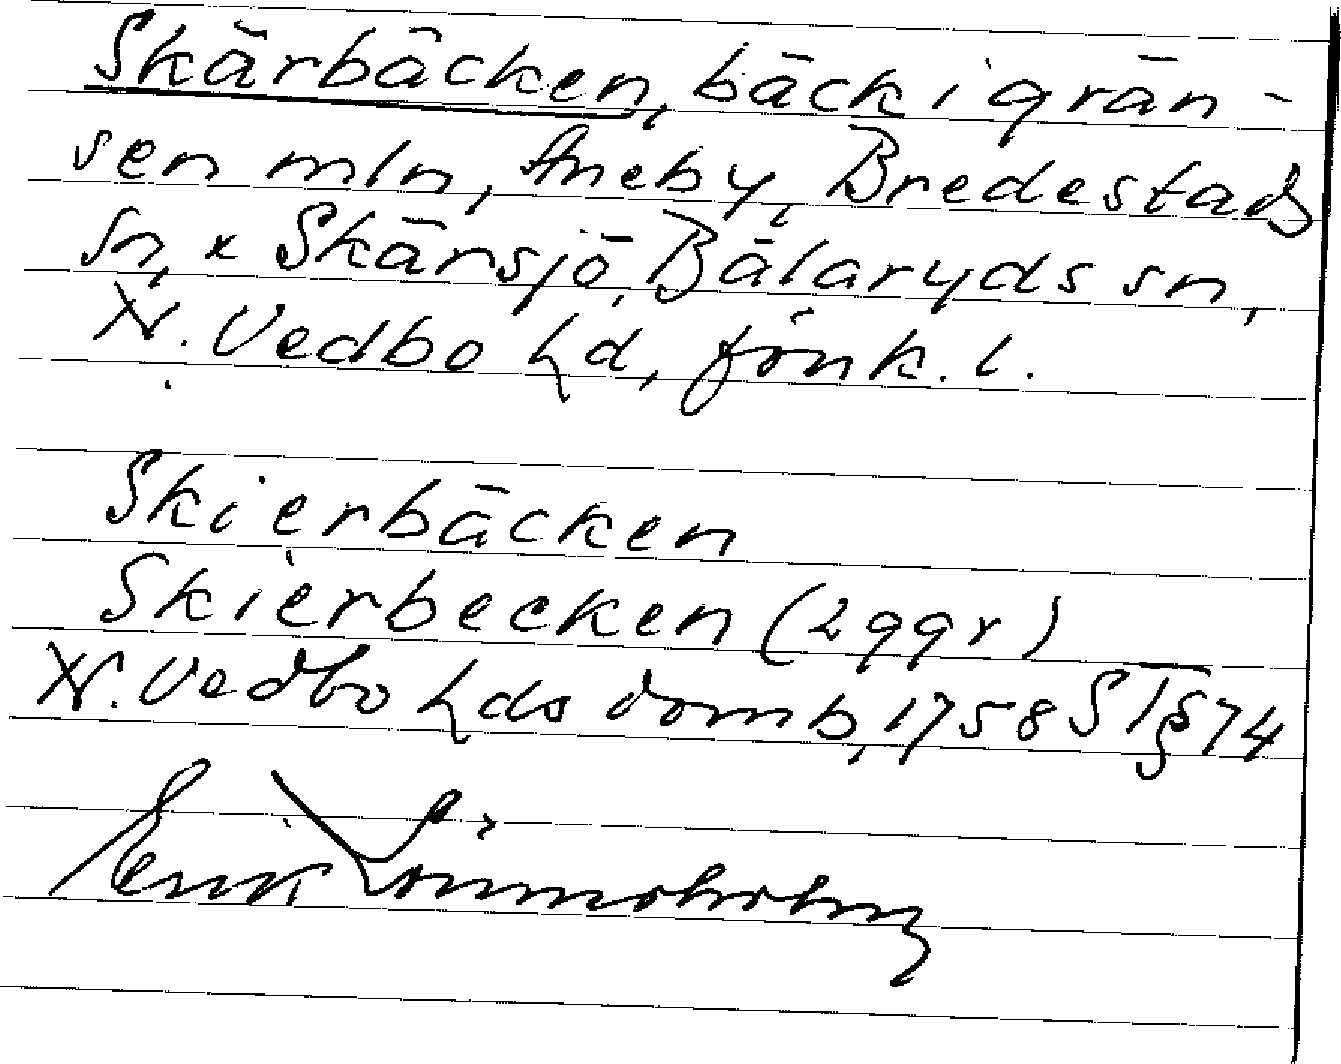 Skärbäcken, bäck i grän-
sen mln, Aneby, Bredestads
sn, x Skärsjö, Bälaryds sn,
N. Vedbo hd, Jönk. l.
Skierbäcken
Skierbecken (2 ggr)
N. Vedbo hds domb, 1758 ST § 74
Erik Lönnsholm